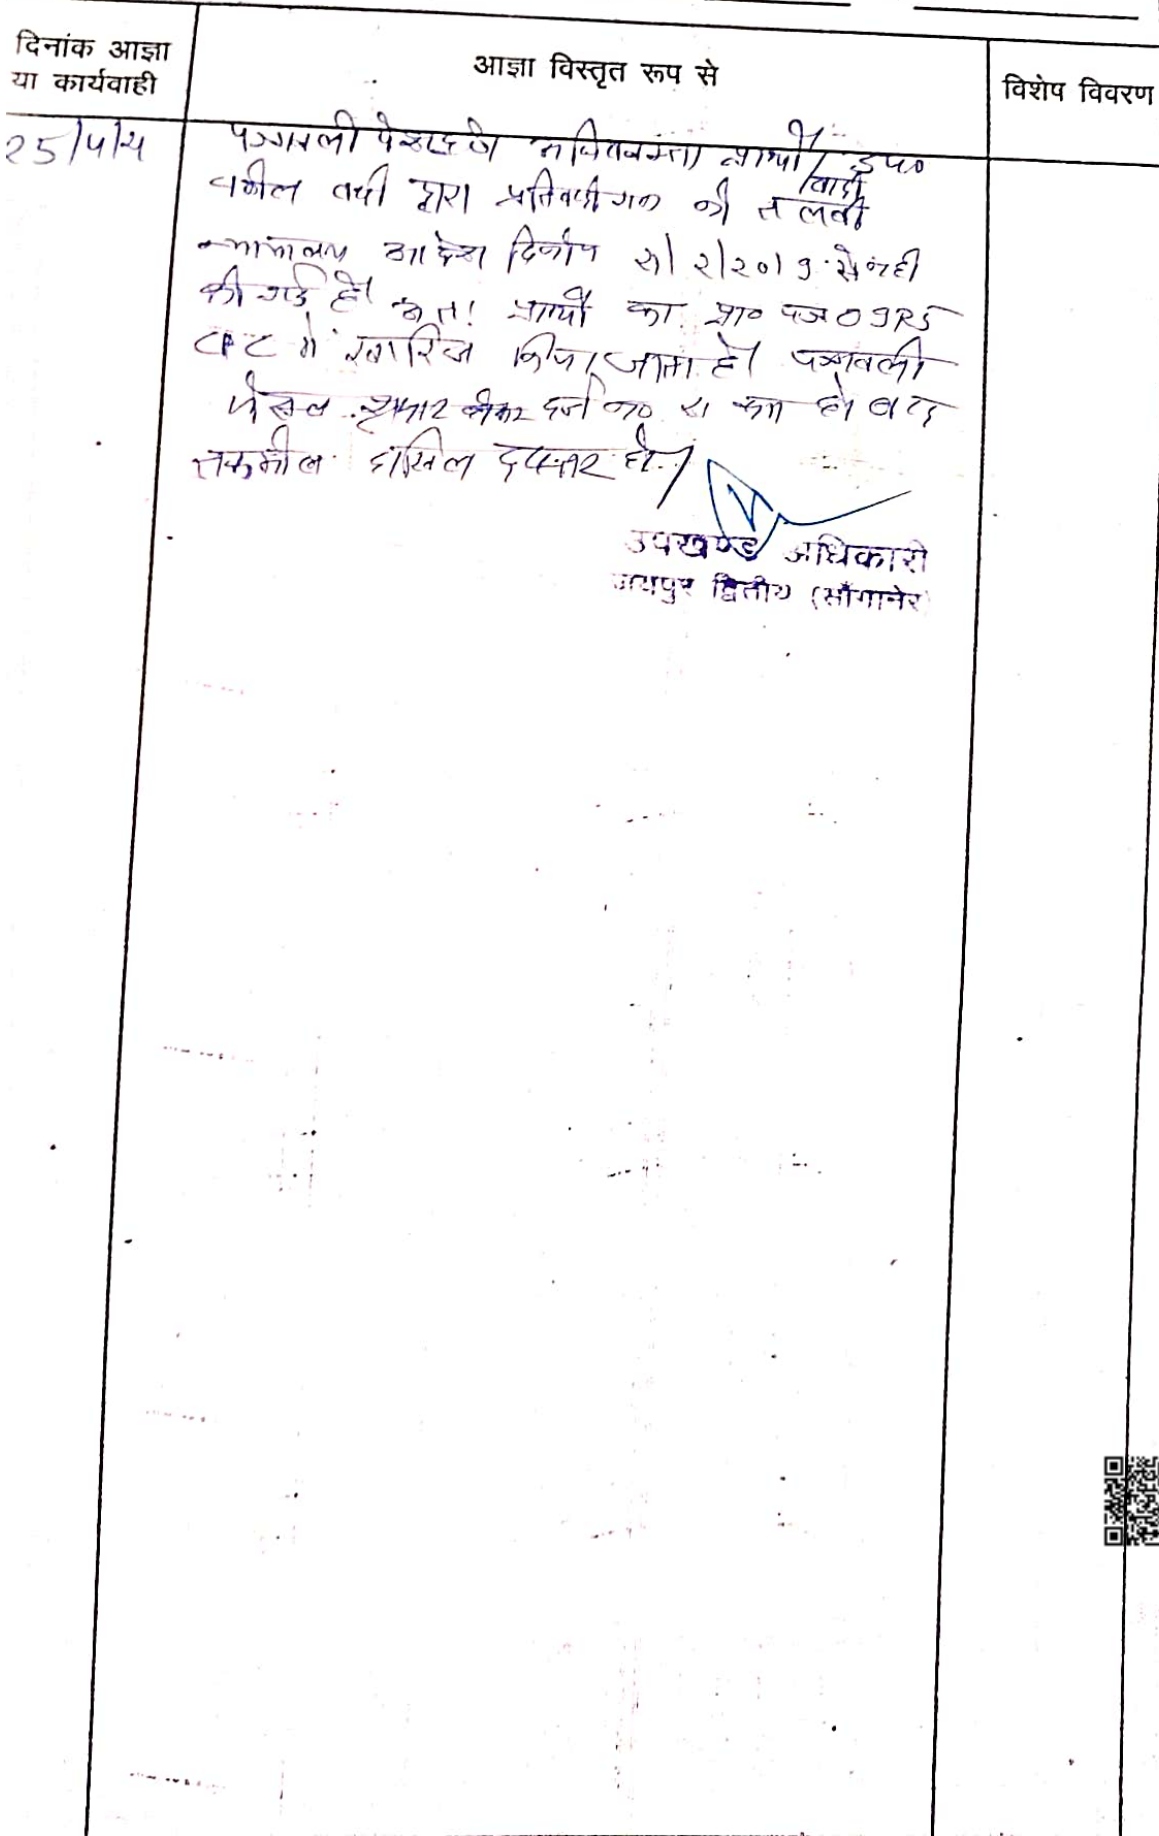 दिनांक आज्ञा
या कार्यवाही
आज्ञा विस्तृत रूप से
विशेष विवरण
25/4/24
पत्रावली पेश हुई। प्रार्थी / वादी उप०
वकील वादी द्वारा प्रतिवादीगण की तलबी
न्यायालय आदेश दिनांक 2/2019 से नही
की गई है। अतः प्रार्थी का प्रा० पत्र 09R5
CPC में खारिज किया जाता है। पत्रावली
फैसल शुमार होकर दर्ज न० से कम हो बाद
तकमील दाखिल दफ्तर हो।
उपखण्ड अधिकारी
जयपुर द्वितीय (साँगानेर)